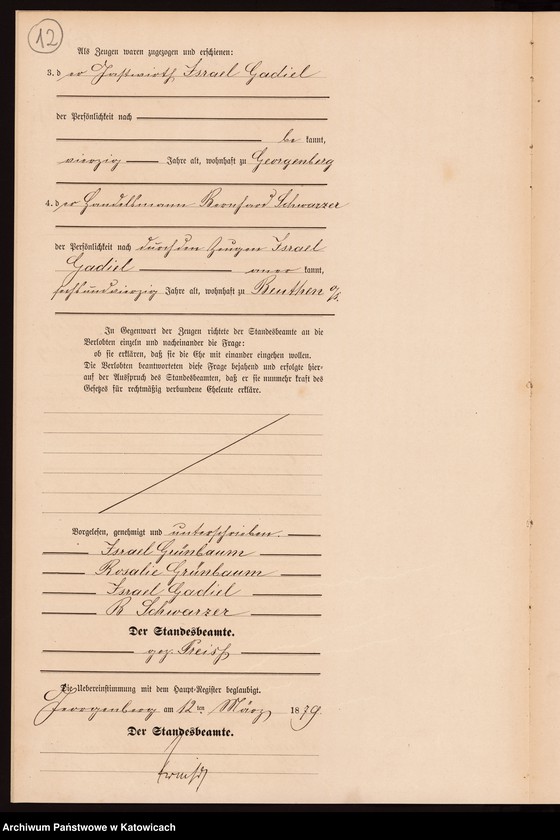 12
Als Zeugen waren zugezogen und erschienen:
3. der Gastwirth Israel Gadiel
der Persönlichkeit nach
be kannt,
vierzig Jahre alt, wohnhaft zu Georgenberg
4. der Handelsmann Bernhard Schwarzer
der Persönlichkeit nach durch den Zeugen Israel
Gadiel aner kannt,
sechsundvierzig Jahre alt, wohnhaft zu Beuthen o/s.
In Gegenwart der Zeugen richtete der Standesbeamte an die
Verlobten einzeln und nacheinander die Frage:
ob sie erklären, daß sie die Ehe mit einander eingehen wollen.
Die Verlobten beantworteten diese Frage bejahend und erfolgte hier-
auf der Ausspruch des Standesbeamten, daß er sie nunmehr kraft des
Gesetzes für rechtmäßig verbundene Eheleute erkläre.
Vorgelesen, genehmigt und unterschrieben.
Israel Grünbaum
Rosalie Grünbaum
Israel Gadiel
B Schwarzer
Der Standesbeamte.
gez. Preiß
Die Uebereinstimmung mit dem Haupt-Register beglaubigt.
Georgenberg am 12ten März 1879
Der Standesbeamte.
Archiwum Państwowe w Katowicach